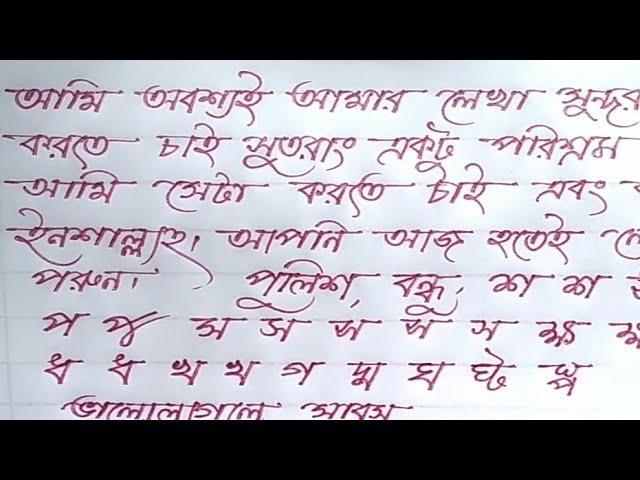 আমি অবশ্যই আমার লেখা সুন্দর
করতে চাই সুতরাং একটু পরিশ্রম
আমি সেটা করতে চাই এবং
ইনশাল্ল্যহ। আপনি আজ হতেই
পরুন। পুলিশ, বন্ধু, শ শ
প প স স স স স ক্ষ
ধ ধ খ খ গ দ্ম ঘ ঘ্ট
ভালোলাগলে সাবস